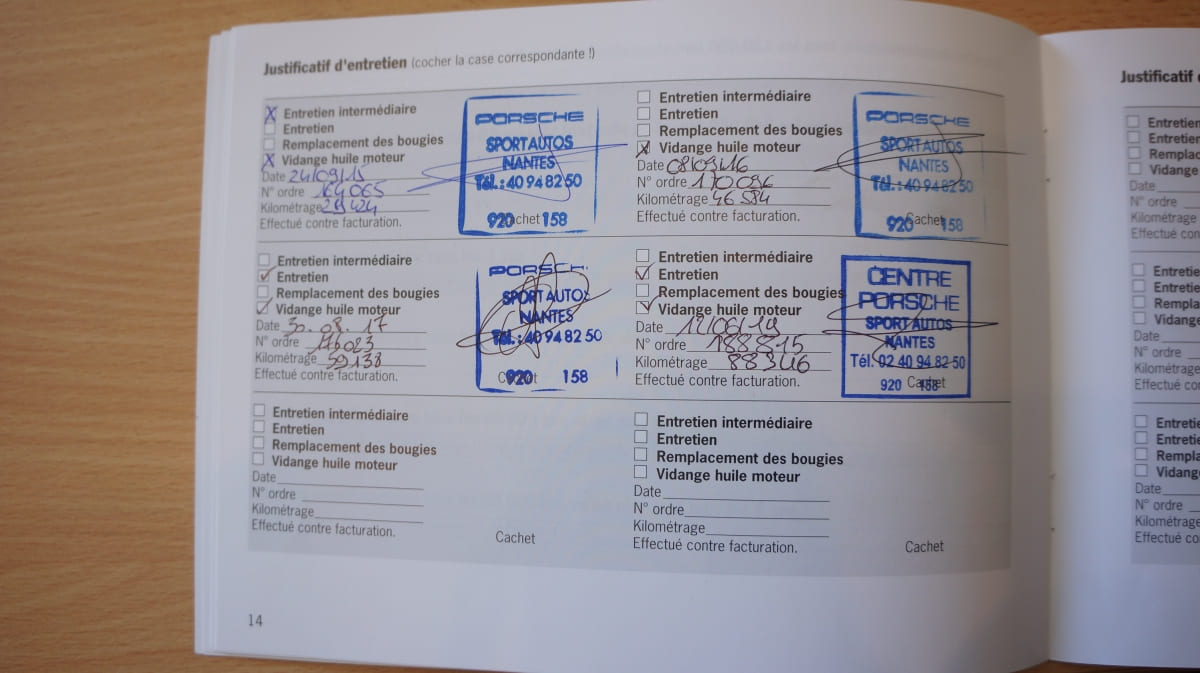 Justificatif d'entretien (cocher la case correspondante !)
X Entretien intermédiaire
Entretien
Remplacement des bougies
X Vidange huile moteur
Date 24/09/15
N° ordre 164065
Kilométrage
Effectué contre facturation.
PORSCHE
SPORT AUTOS
NANTES
Tél.: 40 94 82 50
920 Cachet 158
Entretien intermédiaire
Entretien
Remplacement des bougies
X Vidange huile moteur
Date 08/09/16
N° ordre 170096
Kilométrage 46584
Effectué contre facturation.
PORSCHE
SPORT AUTOS
NANTES
Tél.: 40 94 82 50
920 Cachet 158
Entretien intermédiaire
✓ Entretien
Remplacement des bougies
✓ Vidange huile moteur
Date 30.08.17
N° ordre
Kilométrage 59138
Effectué contre facturation.
PORSCH
SPORT AUTOS
NANTES
Tél.: 40 94 82 50
920 Cachet 158
Entretien intermédiaire
✓ Entretien
Remplacement des bougies
✓ Vidange huile moteur
Date
N° ordre 188815
Kilométrage 88346
Effectué contre facturation.
CENTRE
PORSCHE
SPORT AUTOS
NANTES
Tél. 02 40 94 82 50
920 Cachet 158
Entretien intermédiaire
Entretien
Remplacement des bougies
Vidange huile moteur
Date
N° ordre
Kilométrage
Effectué contre facturation.
Cachet
Entretien intermédiaire
Entretien
Remplacement des bougies
Vidange huile moteur
Date
N° ordre
Kilométrage
Effectué contre facturation.
Cachet
14
Justificatif
Entretien
Entretien
Remplac
Vidange
Date
N° ordre
Kilométrage
Effectué con
Entretie
Entretie
Rempla
Vidange
Date
N° ordre
Kilométra
Effectué co
Entretie
Entretie
Rempla
Vidang
Date
N° ordre
Kilométra
Effectué co